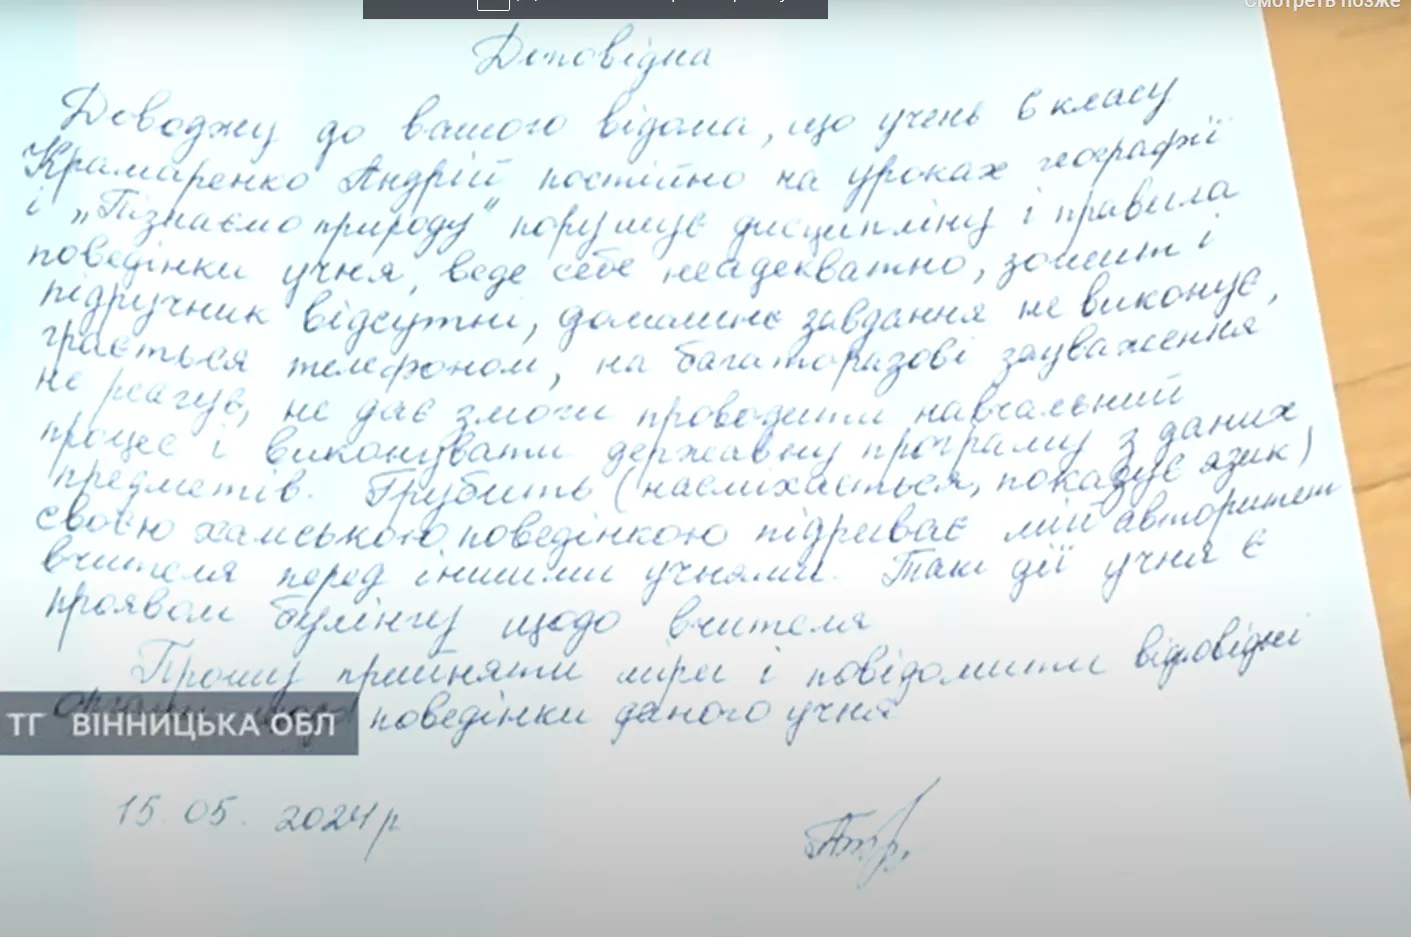 Смотреть позже
Доповідна
Доводжу до вашого відома, що учень 6 класу
Крамаренко Андрій постійно на уроках географії
і „Пізнаємо природу" порушує дисципліну і правила
поведінки учня, веде себе неадекватно, зошит і
підручник відсутні, домашнє завдання не виконує,
грається телефоном, на багаторазові зауваження
не реагує, не дає змоги проводити навчальний
процес і виконувати державну програму з даних
предметів. Грубить (насміхається, показує язик)
своєю хамською поведінкою підриває мій авторитет
вчителя перед іншими учнями. Такі дії учня є
проявом булінгу щодо вчителя
Прошу прийняти міри і повідомити відповідні
органи щодо поведінки даного учня
ТГ ВІННИЦЬКА ОБЛ
15.05.2024 р